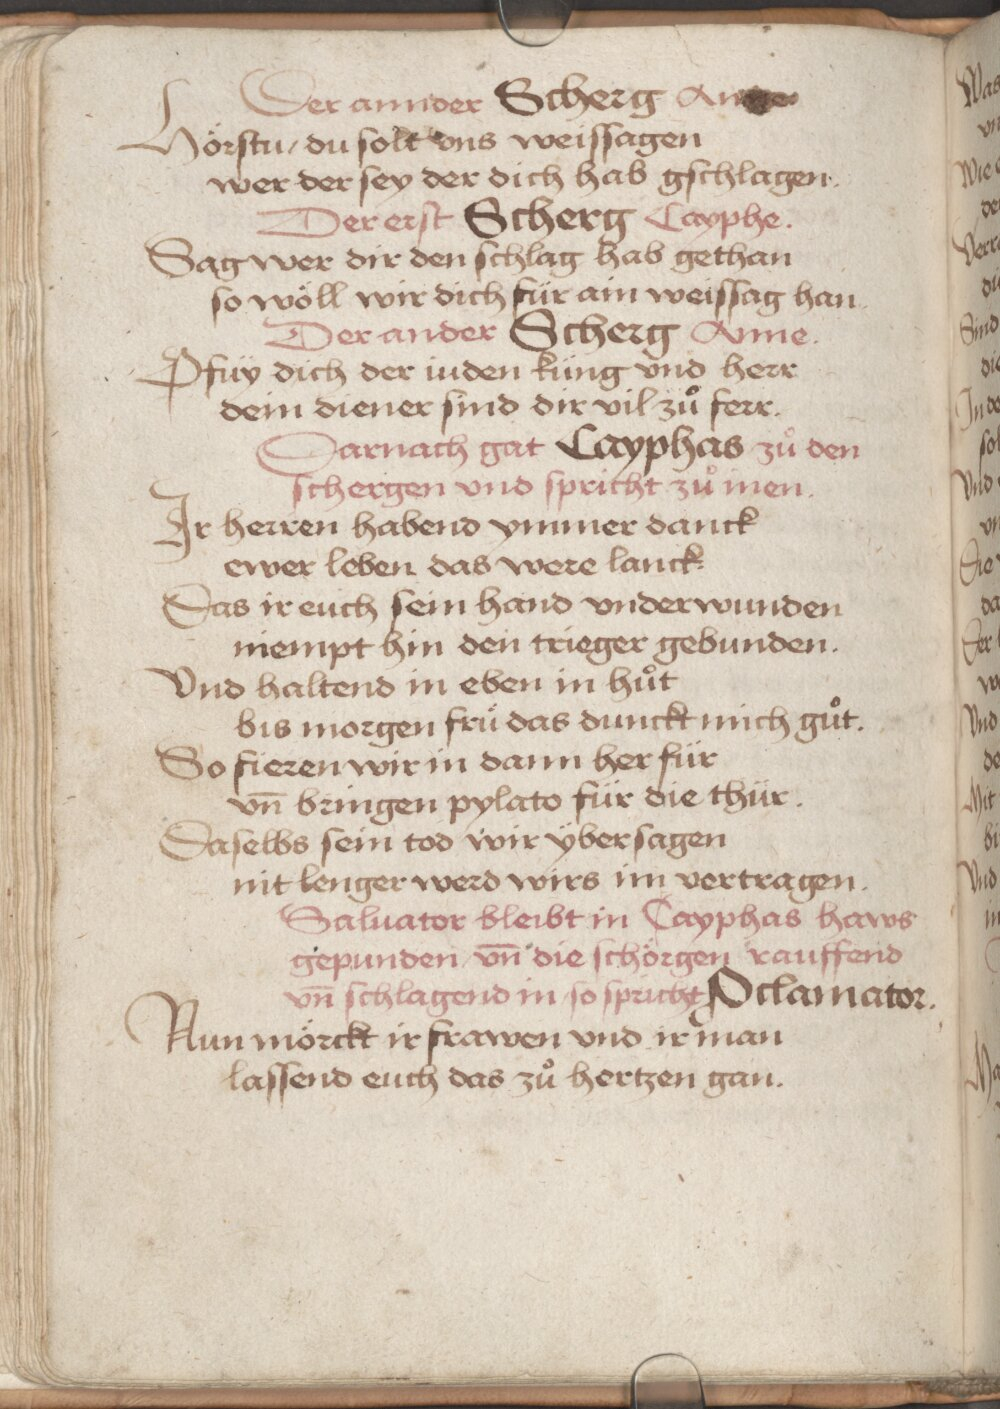 Der annder Scherg
Hörstu / du solt vns weissagen
wer der sey der dich hab gschlagen.
Der erst Scherg Cayphe.
Sag wer dir den schlag hab gethan
so wöll wir dich für ain weissag han.
Der ander Scherg Anne.
Pfüy dich der iuden küng vnd herr
dein diener sind dir vil zuͦ ferr.
Darnach gat Cayphas zuͦ den
schergen vnd spricht zuͦ inen.
Ir herren habend ymmer danck
ewer leben das were lanck.
Das ir euch sein hand vnderwunden
niempt hin den trieger gebunden.
Vnd haltend in eben in huͦt
bis morgen frü das dunckt mich guͦt.
So fieren wir in dann herfür
vn̄ bringen pylato für die thür.
Daselbs sein tod wir übersagen
nit lenger werd wirs im vertragen.
Saluator bleibt in Cayphas haws
gepunden / vn̄ die schörgen rauffend
vn̄ schlagend in / so spricht Pclamator.
Nun mörckt ir frawen vnd ir man
lassend euch das zuͦ hertzen gan.